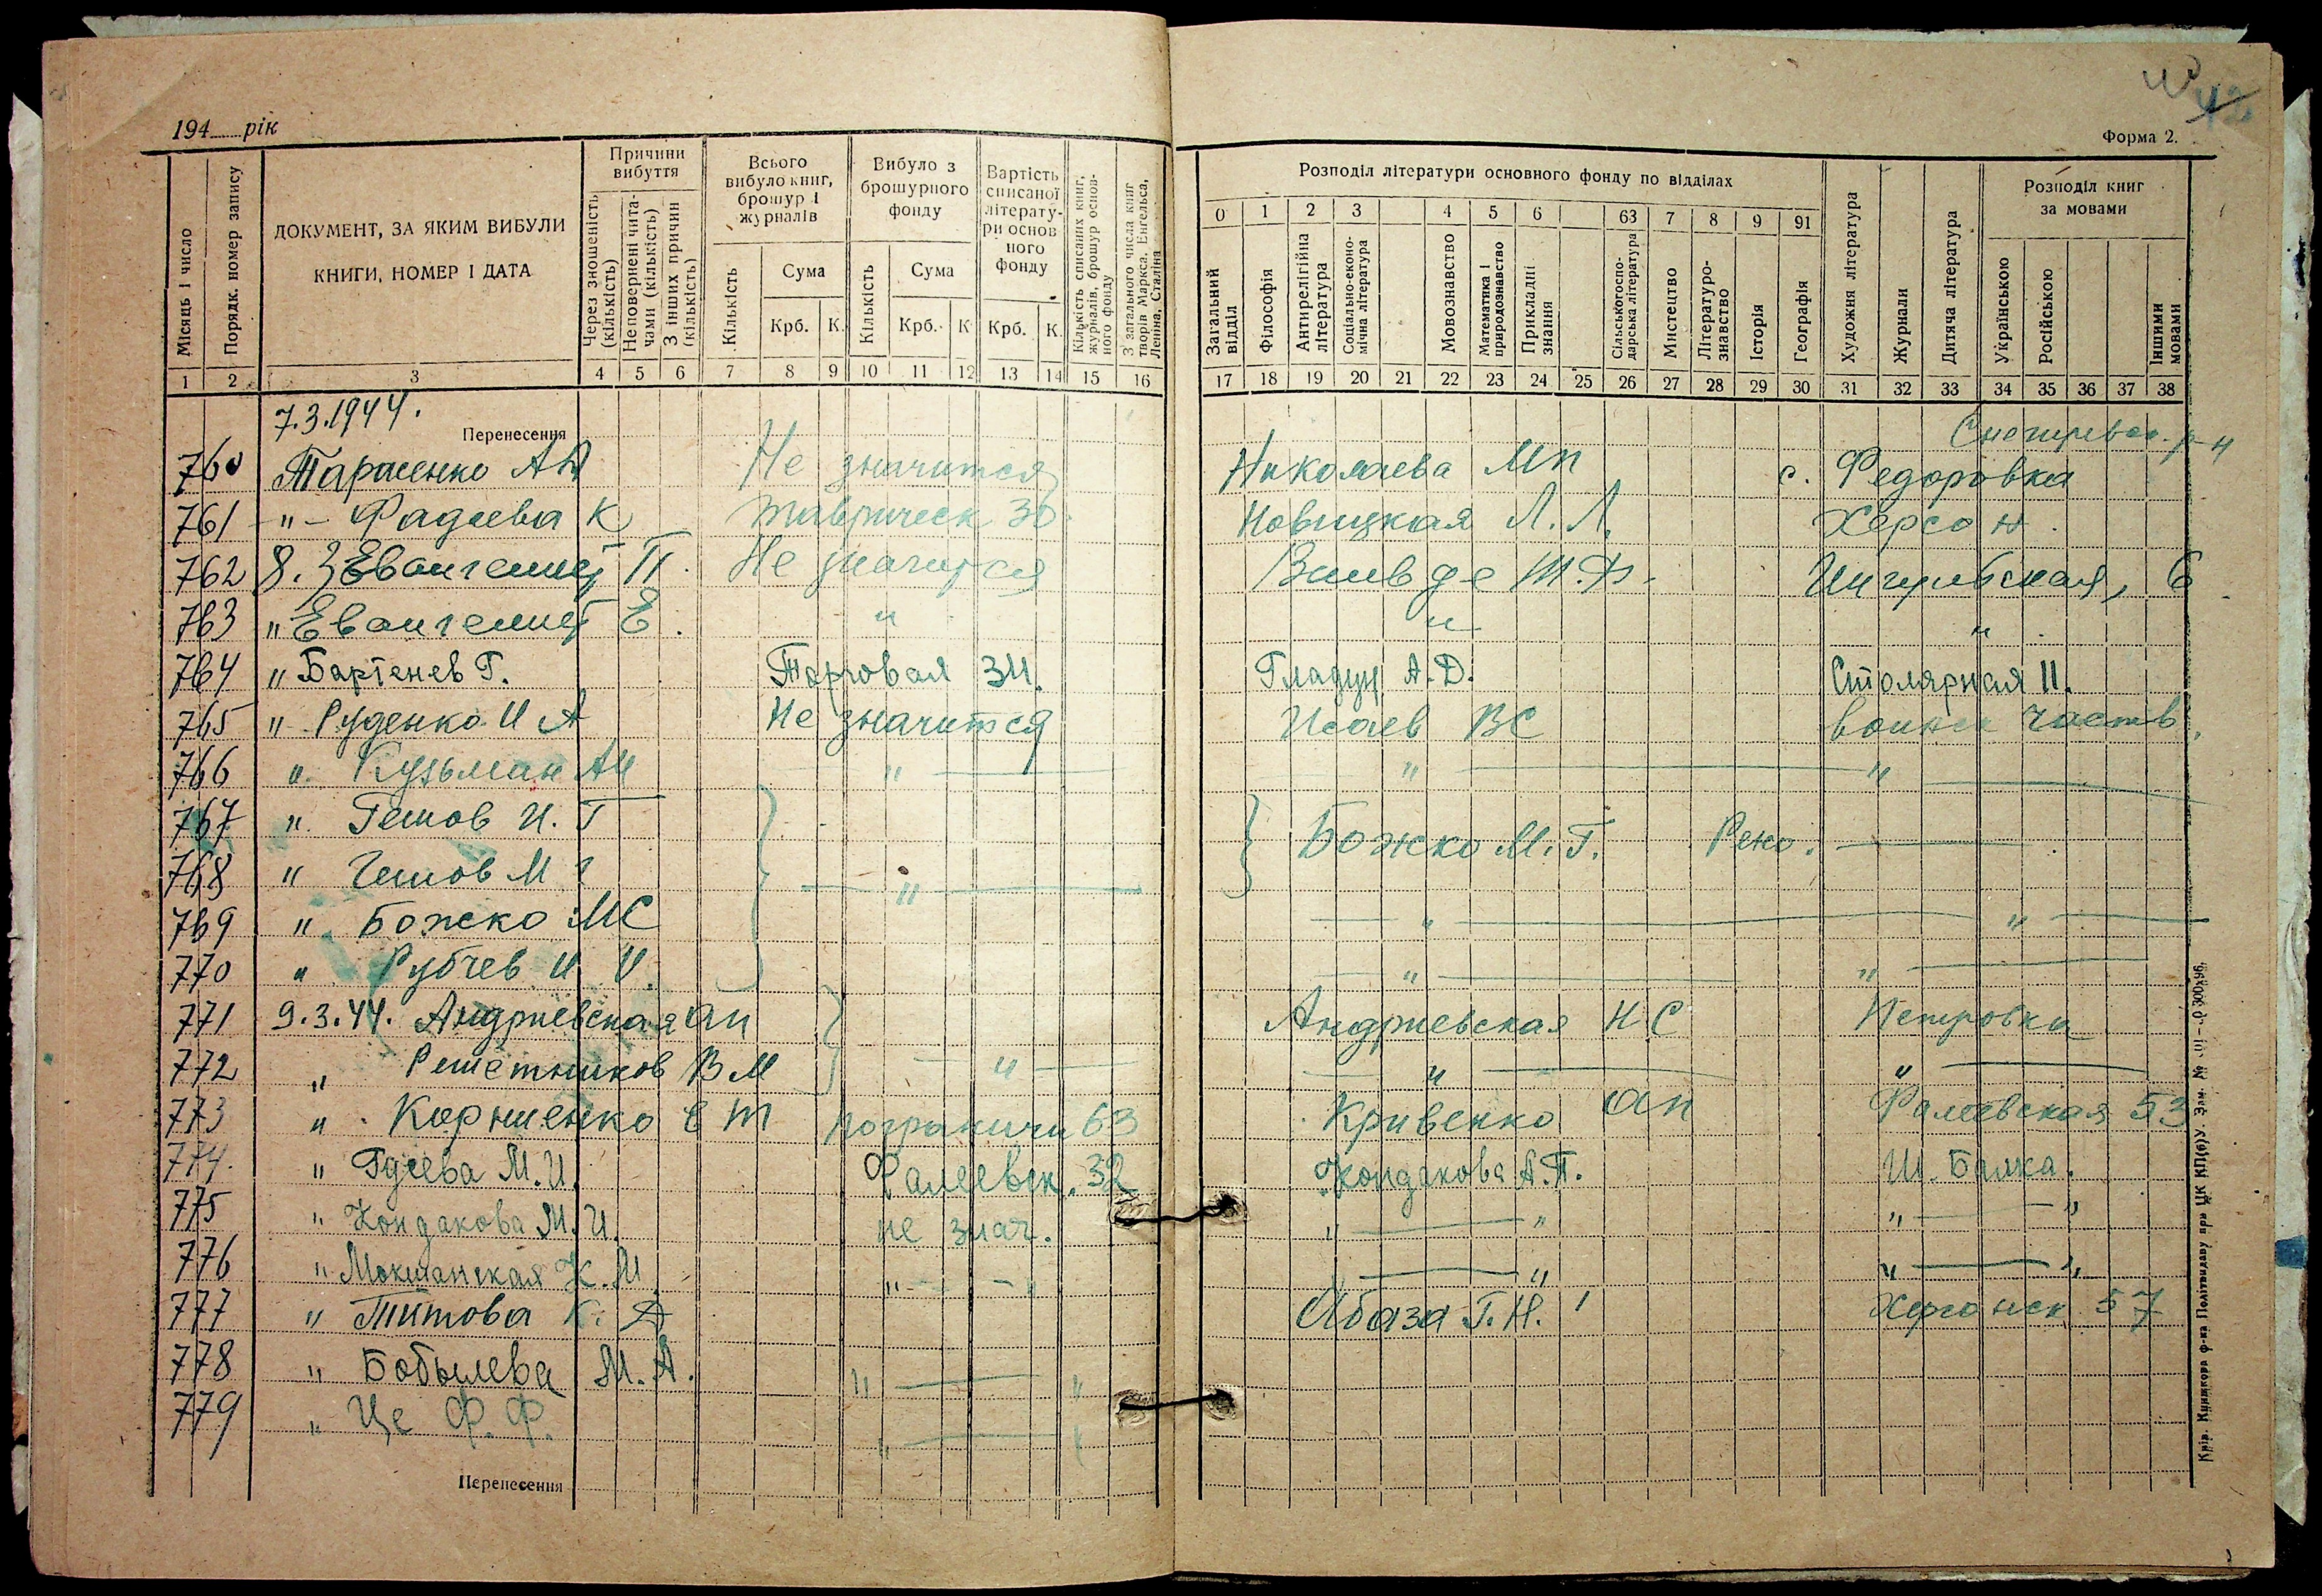 43
194 рік
Форма 2.
Місяць і число
Порядк. номер запису
ДОКУМЕНТ, ЗА ЯКИМ ВИБУЛИ
КНИГИ, НОМЕР І ДАТА
Причини вибуття
Через зношеність (кількість)
Неповернені читачами (кількість)
З інших причин (кількість)
Всього вибуло книг, брошур і журналів
Кількість
Сума
Крб. К.
Вибуло з брошурного фонду
Кількість
Сума
Крб. К
Вартість списаної літератури основного фонду
Крб. К.
Кількість списаних книг, журналів, брошур основного фонду
З загального числа книг творів Маркса, Енгельса, Леніна, Сталіна
Розподіл літератури основного фонду по відділах
0 1 2 3 4 5 6 63 7 8 9 91
Загальний відділ
Філософія
Антирелігійна література
Соціально-економічна література
Мовознавство
Математика і природознавство
Прикладні знання
Сільськогосподарська література
Мистецтво
Літературознавство
Історія
Географія
Художня література
Журнали
Дитяча література
Розподіл книг за мовами
Українською
Російською
Іншими мовами
1 2 3 4 5 6 7 8 9 10 11 12 13 14 15 16
17 18 19 20 21 22 23 24 25 26 27 28 29 30 31 32 33 34 35 36 37 38
7.3.1944.
Перенесення
Снегирев р-н
760 Тарасенко А Д Не значится Николаева М П с. Федоровка
761 -"- Фадеева К Таврическ 30. Новицкая Л. Л. Херсон.
762 8.3 Евангелист П. Не значится Т.Ф. Ингульская, 6
763 " Евангелист Е. " " "
764 " Бартенев Г. Торговая 34. Гладун А.Д. Столярная 11.
765 " Руденко И А Не значится Исаев ВС воинск часть.
766 " Кузьман АИ " " "
767 " Гешов И. Г Божко М. Г. Рено.
768 " Гешов М г "
769 " Божко МС " "
770 " Рубчев И. И " "
771 9.3.44. Андриевская АП Андриевская НС Петровка
772 " Решетников ВМ " " "
773 " Корниенко Е Т погранични 63 Кривенко АП Фалеевская 53
774. " Гусева М.И. Фалеевск. 32 Кондакова А.П. Ш. Балка.
775 " Кондакова М.И. не знач. " " " "
776 " Мокшанская К.М " " " " " "
777 " Титова К. Д Абаза Г.Н. Херсонск 57
778 " Бобылева М.А. " "
779 " Це Ф.Ф. " "
Перенесення